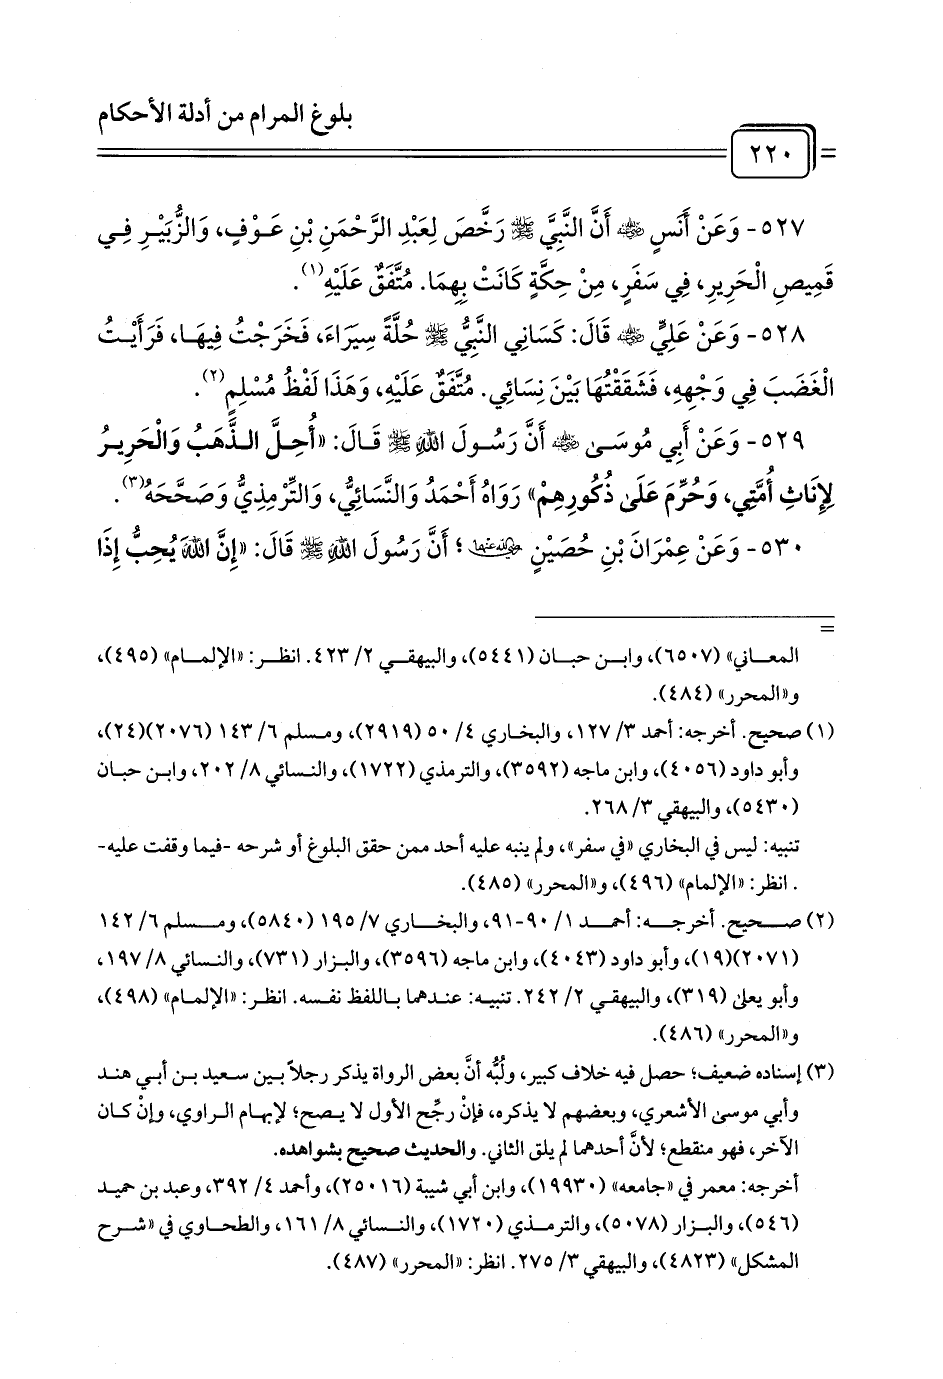 بلوغ المرام من أدلة الأحكام
٢٢٠
٥٢٧- وَعَنْ أَنَسٍ ﷺ أَنَّ النَّبِيَّ ﷺ رَخَّصَ لِعَبْدِ الرَّحْمَنِ بْنِ عَوْفٍ، وَالزُّبَيْرِ فِي
قَمِيصِ الْحَرِيرِ، فِي سَفَرٍ، مِنْ حِكَّةٍ كَانَتْ بِهِمَا. مُتَّفَقٌ عَلَيْهِ(١).
٥٢٨- وَعَنْ عَلِيٍّ رضي الله عنه قَالَ: كَسَانِي النَّبِيُّ ﷺ حُلَّةً سِيَرَاءَ، فَخَرَجْتُ فِيهَا، فَرَأَيْتُ
الْغَضَبَ فِي وَجْهِهِ، فَشَقَقْتُهَا بَيْنَ نِسَائِي. مُتَّفَقٌ عَلَيْهِ، وَهَذَا لَفْظُ مُسْلِمٍ(٢).
٥٢٩- وَعَنْ أَبِي مُوسَىٰ رضي الله عنه أَنَّ رَسُولَ اللهِ ﷺ قَالَ: «أُحِلَّ الذَّهَبُ وَالْحَرِيرُ
لِإِنَاثِ أُمَّتِي، وَحُرِّمَ عَلَىٰ ذُكُورِهِمْ» رَوَاهُ أَحْمَدُ وَالنَّسَائِيُّ، وَالتِّرْمِذِيُّ وَصَحَّحَهُ(٣).
٥٣٠- وَعَنْ عِمْرَانَ بْنِ حُصَيْنٍ رضي الله عنهما؛ أَنَّ رَسُولَ اللهِ ﷺ قَالَ: «إِنَّ اللهَ يُحِبُّ إِذَا
=
المعاني» (٦٥٠٧)، وابن حبان (٥٤٤١)، والبيهقي ٢/ ٤٢٣. انظر: «الإلمام» (٤٩٥)،
و«المحرر» (٤٨٤).
(١) صحيح. أخرجه: أحمد ٣/ ١٢٧، والبخاري ٤/ ٥٠ (٢٩١٩)، ومسلم ٦/ ١٤٣ (٢٠٧٦)(٢٤)،
وأبو داود (٤٠٥٦)، وابن ماجه (٣٥٩٢)، والترمذي (١٧٢٢)، والنسائي ٨/ ٢٠٢، وابن حبان
(٥٤٣٠)، والبيهقي ٣/ ٢٦٨.
تنبيه: ليس في البخاري «في سفر»، ولم ينبه عليه أحد ممن حقق البلوغ أو شرحه -فيما وقفت عليه-
. انظر: «الإلمام» (٤٩٦)، و«المحرر» (٤٨٥).
(٢) صحيح. أخرجه: أحمد ١/ ٩٠-٩١، والبخاري ٧/ ١٩٥ (٥٨٤٠)، ومسلم ٦/ ١٤٢
(٢٠٧١)(١٩)، وأبو داود (٤٠٤٣)، وابن ماجه (٣٥٩٦)، والبزار (٧٣١)، والنسائي ٨/ ١٩٧،
وأبو يعلىٰ (٣١٩)، والبيهقي ٢/ ٢٤٢. تنبيه: عندهما باللفظ نفسه. انظر: «الإلمام» (٤٩٨)،
و«المحرر» (٤٨٦).
(٣) إسناده ضعيف؛ حصل فيه خلاف كبير، ولُبُّه أنَّ بعض الرواة يذكر رجلاً بين سعيد بن أبي هند
وأبي موسىٰ الأشعري، وبعضهم لا يذكره، فإنْ رجِّح الأول لا يصح؛ لإبهام الراوي، وإنْ كان
الآخر، فهو منقطع؛ لأنَّ أحدهما لم يلق الثاني. والحديث صحيح بشواهده.
أخرجه: معمر في «جامعه» (١٩٩٣٠)، وابن أبي شيبة (٢٥٠١٦)، وأحمد ٤/ ٣٩٢، وعبد بن حميد
(٥٤٦)، والبزار (٥٠٧٨)، والترمذي (١٧٢٠)، والنسائي ٨/ ١٦١، والطحاوي في «شرح
المشكل» (٤٨٢٣)، والبيهقي ٣/ ٢٧٥. انظر: «المحرر» (٤٨٧).